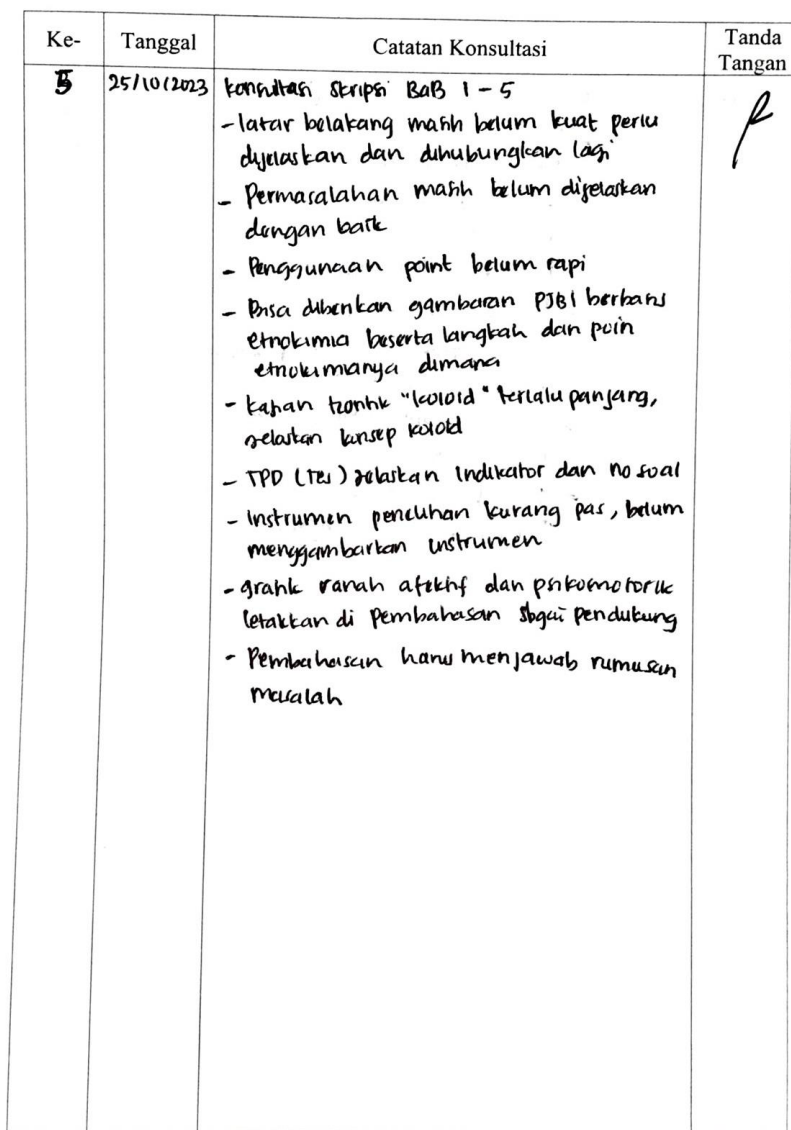 Ke- Tanggal Catatan Konsultasi Tanda Tangan
5 25/10/2023 Konsultasi Skripsi BaB 1 - 5
- latar belakang masih belum kuat perlu
dijelaskan dan dihubungkan lagi
- Permasalahan masih belum dijelaskan
dengan baik
- Penggunaan point belum rapi
- Bisa diberikan gambaran PJBl berbasis
etnokimia beserta langkah dan poin
etnokimianya dimana
- kajian teoritik "koloid" terlalu panjang,
jelaskan konsep koloid
- TPD (Tes) jelaskan Indikator dan no soal
- Instrumen penelitian kurang pas, belum
menggambarkan instrumen
- grafik ranah afektif dan psikomotorik
letakkan di Pembahasan sbgai pendukung
- Pembahasan harus menjawab rumusan
masalah